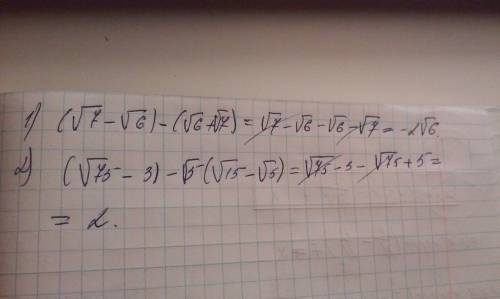 1) (√7 - √6) - (√6 + √7) = √7 - √6 - √6 - √7 = -2√6.
2) (√75 - 3) - √5 (√15 - √5) = √75 - 3 - √75 + 5 =
= 2.